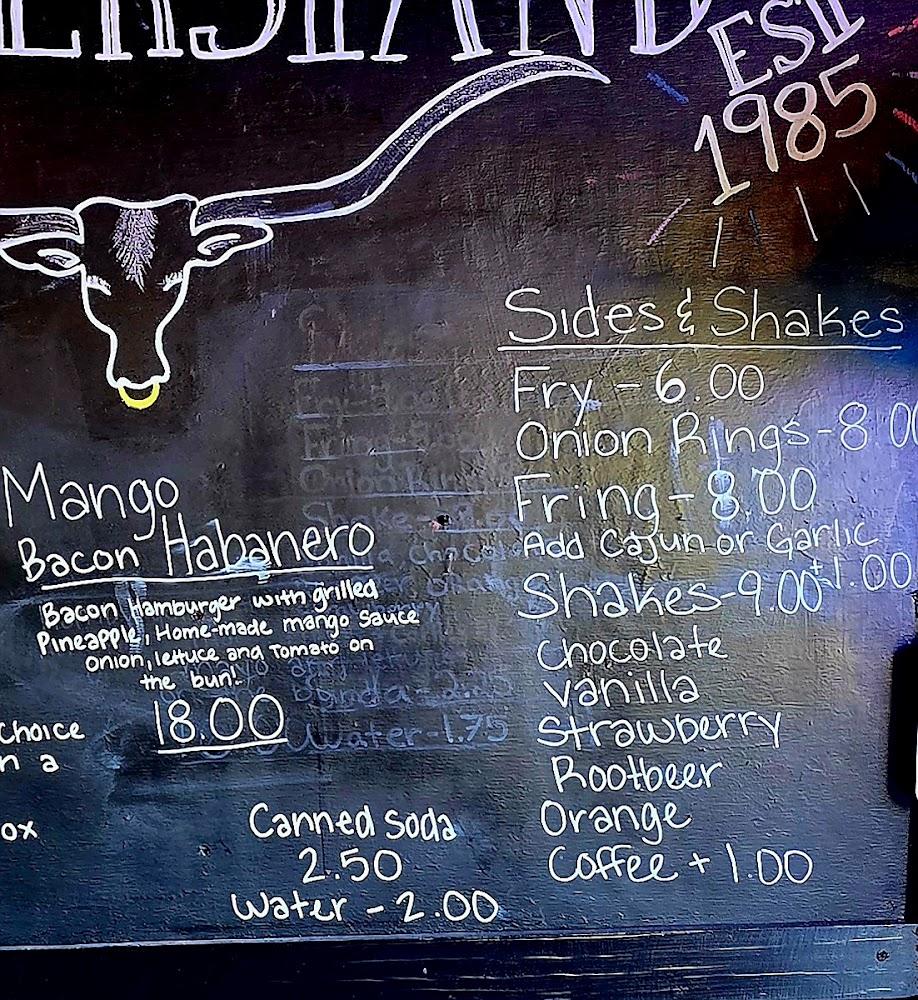 ERSTAND
EST
1985
Mango
Bacon Habanero
Bacon Hamburger with grilled
Pineapple, Home-made mango Sauce
onion, lettuce and Tomato on
the bun!
18.00
Choice
n a
ox
Canned Soda
2.50
Water - 2.00
Sides & Shakes
Fry - 6.00
Onion Rings - 8.00
Fring - 8.00
Add Cajun or Garlic
+1.00
Shakes - 9.00
Chocolate
Vanilla
Strawberry
Rootbeer
Orange
Coffee + 1.00
Water - 1.75